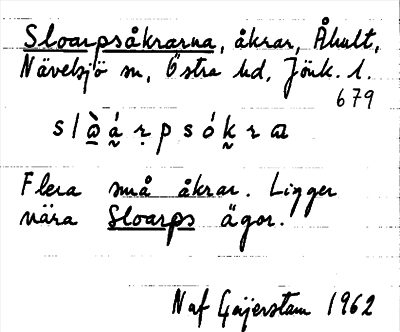 Sloarpsåkrarna, åkrar, Åhult,
Nävelsjö sn, Östra hd, Jönk. l.
679
Flera små åkrar. Ligger
nära Sloarps ägor.
Naf Geijerstam 1962